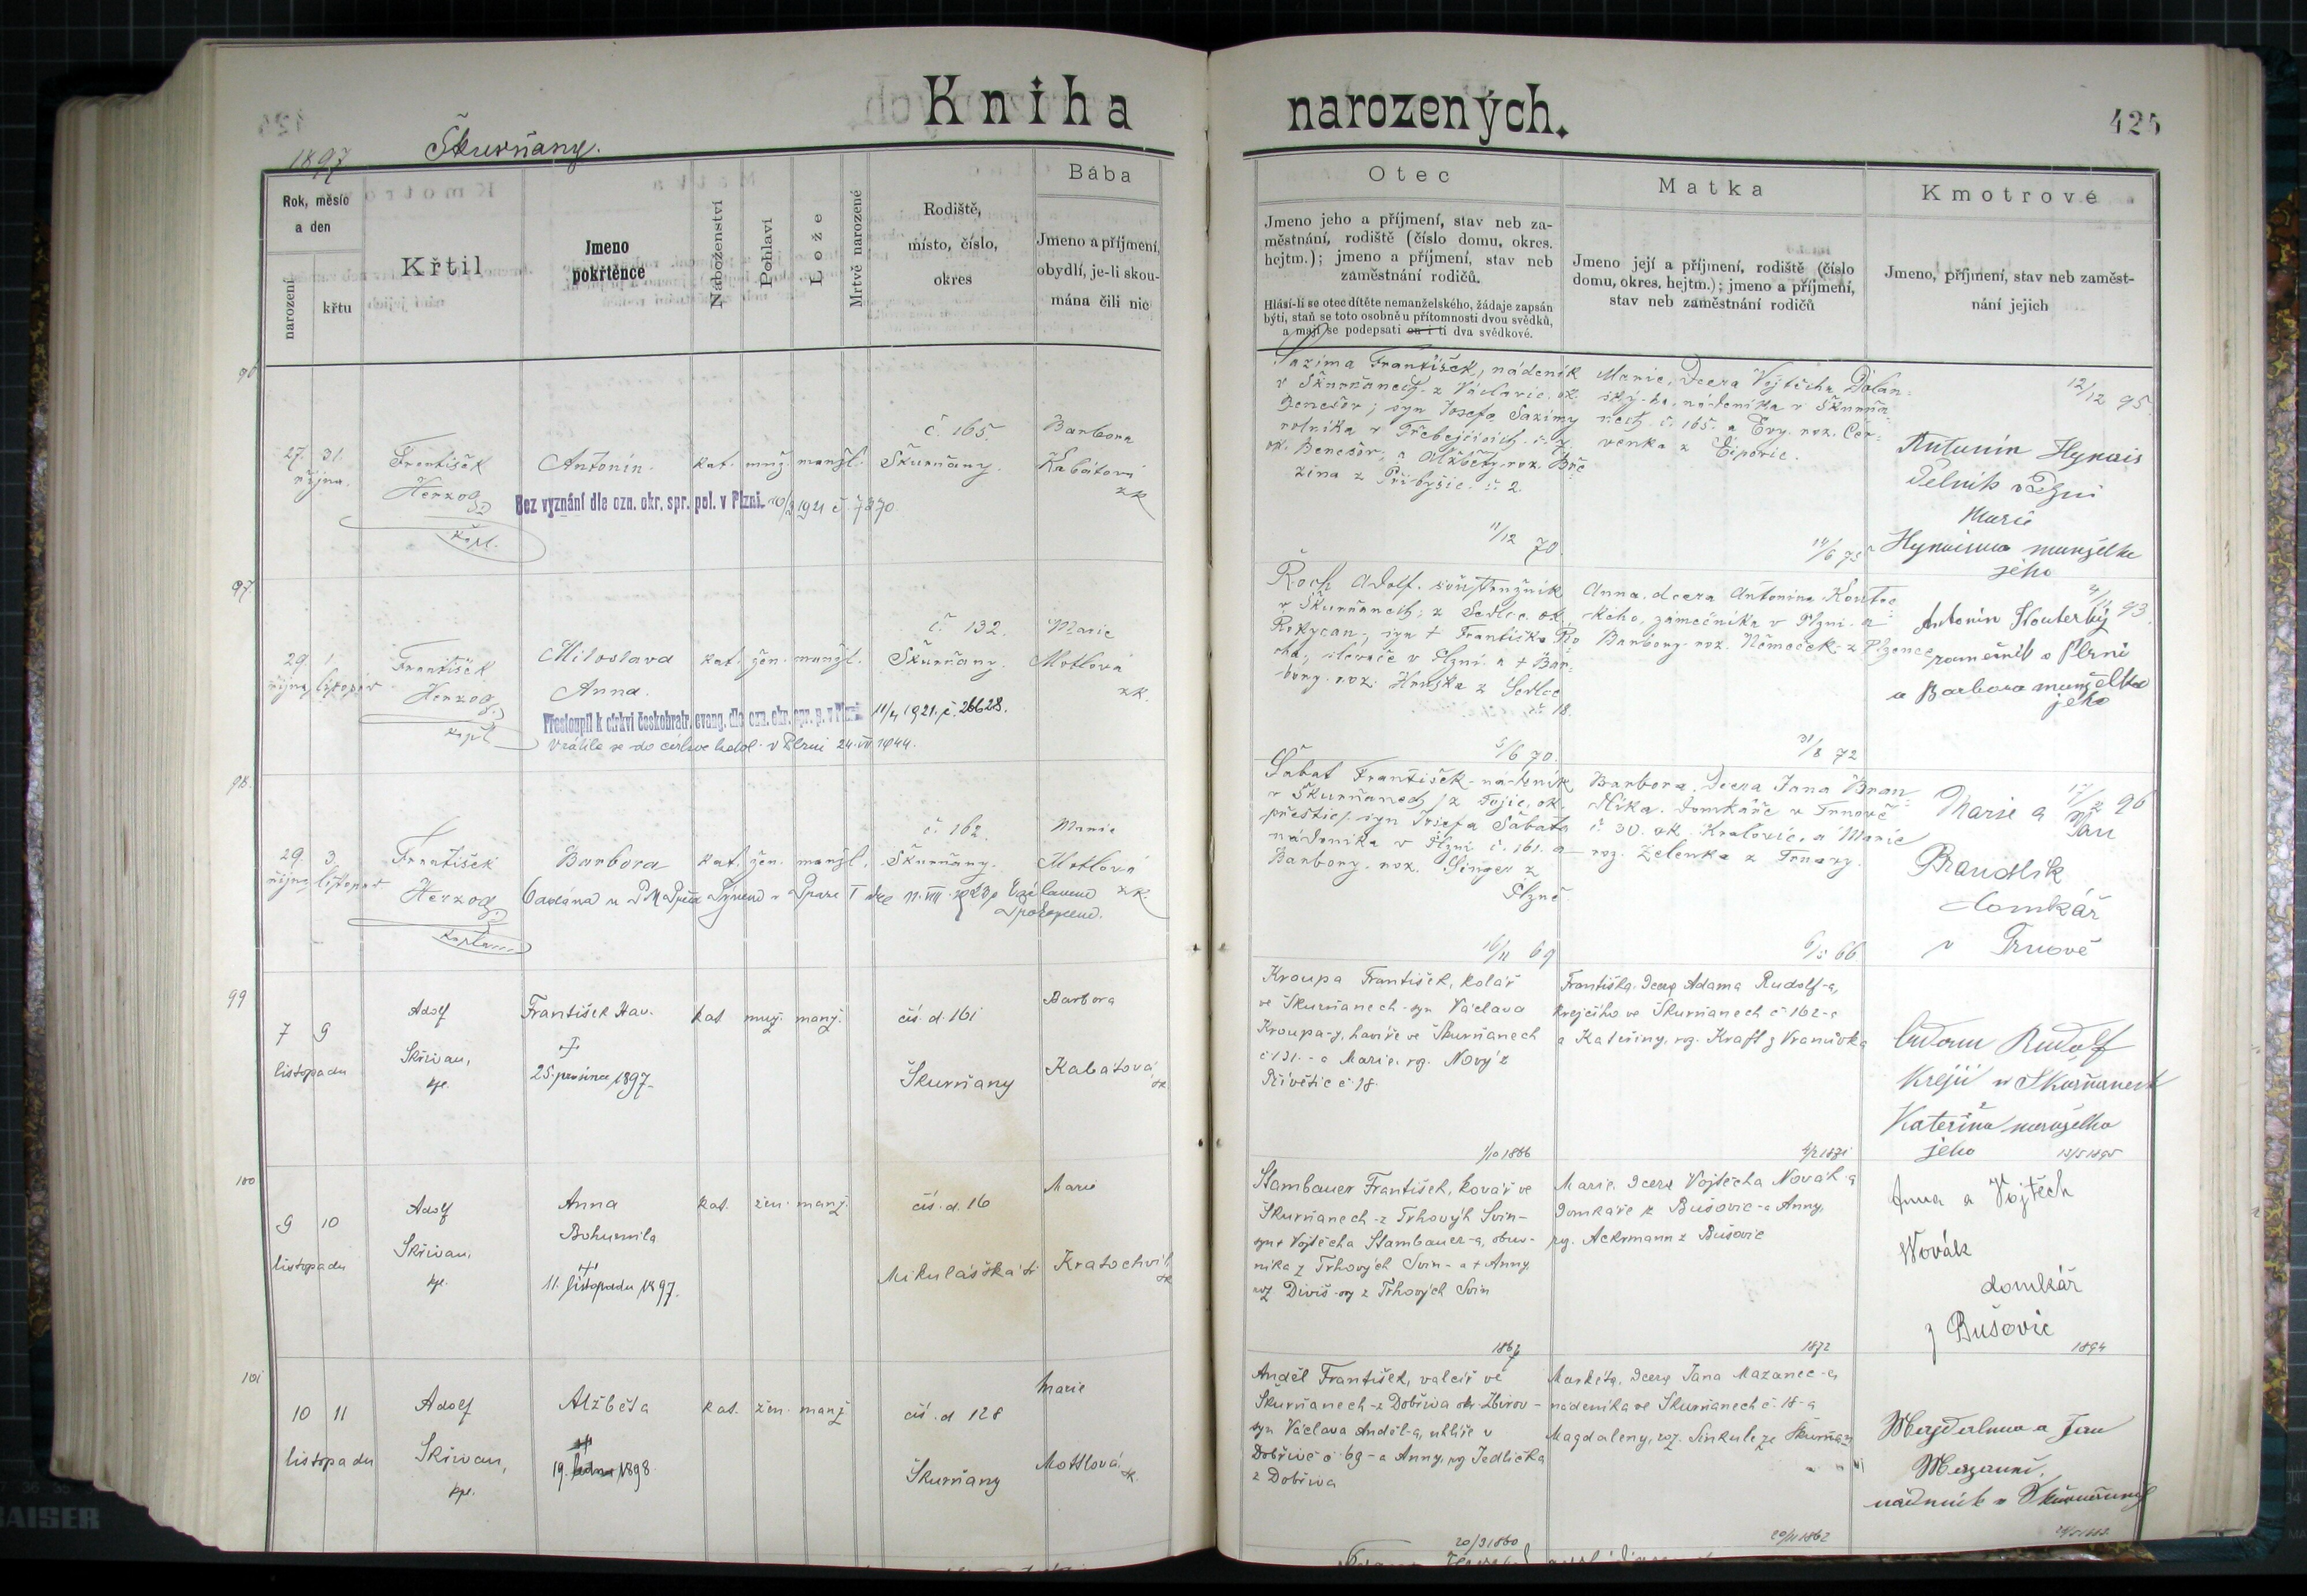 Kniha narozených.
425
1897
Škurňany.
Rok, měsíc
a den
narození
křtu
Křtil
Jmeno
pokřtěnce
Náboženství
Pohlaví
Lože
Mrtvě narozené
Rodiště,
místo, číslo,
okres
Bába
Jmeno a příjmení,
obydlí, je-li skou-
mána čili nic
Otec
Jmeno jeho a příjmení, stav neb za-
městnání, rodiště (číslo domu, okres.
hejtm.); jmeno a příjmení, stav neb
zaměstnání rodičů.
Hlásí-li se otec dítěte nemanželského, žádaje zapsán
býti, staň se toto osobně u přítomnosti dvou svědků,
a mají se podepsati on i ti dva svědkové.
Matka
Jmeno její a příjmení, rodiště (číslo
domu, okres. hejtm.); jmeno a příjmení,
stav neb zaměstnání rodičů
Kmotrové
Jmeno, příjmení, stav neb zaměst-
nání jejich
96
27. 31.
října.
František
Herzog
kapl.
Antonín.
kat. muž. manžl.
č. 165.
Škurňany.
Barbora
Kabátová
zk
Bez vyznání dle ozn. okr. spr. pol. v Plzni. 1921 č. 7870
Sazima František, nádeník
v Škurňanech z Václavic. ok.
Benešov; syn Josefa Sazimy
rolníka v Třebejčicích č. 7.
ok. Benešov, a Alžběty roz. Bře-
zina z Přibyšic č. 2.
11/12 70
Marie, dcera Vojtěcha Dolan-
ský-ho, nádeníka v Škurňa-
nech č. 165. a Evy. roz. Čer-
venka z Čiperic.
14/6 75
12/12 95.
Antonín Hynais
v Plzni
Marie
manželka
jeho
97.
29. 1
října listopad
František
Herzog
kapl.
Miloslava
Anna.
kat. žen. manžl.
č. 132.
Škurňany.
Marie
Motlová
zk.
Přestoupil k církvi českobratr. evang. dle ozn. okr. spr. p. v Plzni 11/4 1921. č. 26628.
Vrátila se do církve katol. v Plzni 24. VII 1944.
Roch Adolf. soustružník
v Škurňanech; z Sedlce ok.
Rokycan; syn † Františka Ro-
cha, slevače v Plzni a † Bar-
bory. roz. Hruška z Sedlce
č. 18.
5/6 70.
Anna. dcera Antonína Koute-
kého, zámečníka v Plzni. a
Barbory. roz. Němeček z Plzence
31/8 72
93.
Antonín Kouterký
zámečník v Plzni
a Barbora manželka
jeho
98.
29. 3.
října listopad
František
Herzog
kaplan
Barbora
kat. žen. manžl.
č. 162.
Škurňany.
Marie
Motlová
zk.
Šabat František - nádeník
v Škurňanech / z Tojic, ok.
přeštic/. syn Josefa Šabata
nádeníka v Plzni č. 161. a
Barbory. roz. Singer z
Plzně.
16/11 69
Barbora. dcera Jana Bran-
dlíka. domkáře v Trnově
č. 30. ok. Kralovic. a Marie
roz. Zelenka z Trnavy.
6/5 66
17/2 96
Marie a Jan
Brandlík
domkář
v Trnově
99
7 9
listopadu
Adolf
Skřivan,
kpl.
František Hav.
†
25. prosince 1897
kat. muž. manž.
čís. d. 161
Škurňany
Barbora
Kabátová
zk
Kroupa František, kolář
ve Škurňanech - syn Václava
Kroupa-y, havíře ve Škurňanech
č 131. - a Marie, roz. Nový z
Přívětic č. 18.
1/10 1866
Františka, dcera Adama Rudolf-a,
krejčího ve Škurňanech č 162 - a
a Kateřiny, roz. Kraft z Vranůvka
Adam Rudolf
Krejčí v Škurňanech
Kateřina manželka
jeho
100
9 10
listopadu
Adolf
Skřivan,
kpl.
Anna
Bohumila
†
11. listopadu 1897.
kat. žen. manž.
čís. d. 16
Mikulášská tř
Marie
Kratochvíl
zk
Stambauer František, kovář ve
Škurňanech - z Trhových Svin -
syn † Vojtěcha Stambauer-a, obuv-
níka z Trhových Svin - a † Anny,
roz Diviš-ovy z Trhových Svin
1867
Marie, dcera Vojtěcha Novák-a
domkáře z Bušovic - a Anny,
roz. Ackrmann z Bušovic
1872
Anna a Vojtěch
Novák
domkář
z Bušovic
1894
101
10 11
listopadu
Adolf
Skřivan,
kpl.
Alžběta
†
19. ledna 1898
kat. žen. manž
čís. d 128
Škurňany
Marie
Mottlová
zk.
Anděl František, valcíř ve
Škurňanech - z Dobříva okr. Zbirov -
syn Václava Anděl-a, uhlíře v
Dobřívě č. 69 - a Anny, roz Jedlička
z Dobříva
20/9 1860
Markéta, dcera Jana Mazanec-e,
nádeníka ve Škurňanech č. 18 - a
Magdaleny, roz. Sinkule ze Škurňan
20/11 1862
Magdalena a Jan
nádeník v Škurňanech